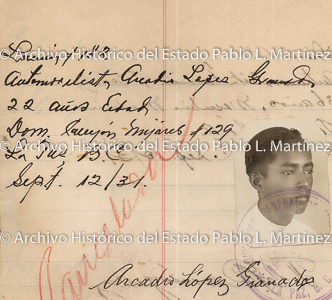 © Archivo Histórico del Estado Pablo L. Martínez
Automovilista, Arcadio Lopez Granados
22 años Edad
Dom. Callejón Mijares #129
La Paz B.C.
Sept. 12/31.
Cancelado
© Archivo Histórico del Estado Pablo L. Martínez
Arcadio López Granados
© Archivo Histórico del Estado Pablo L. Martínez